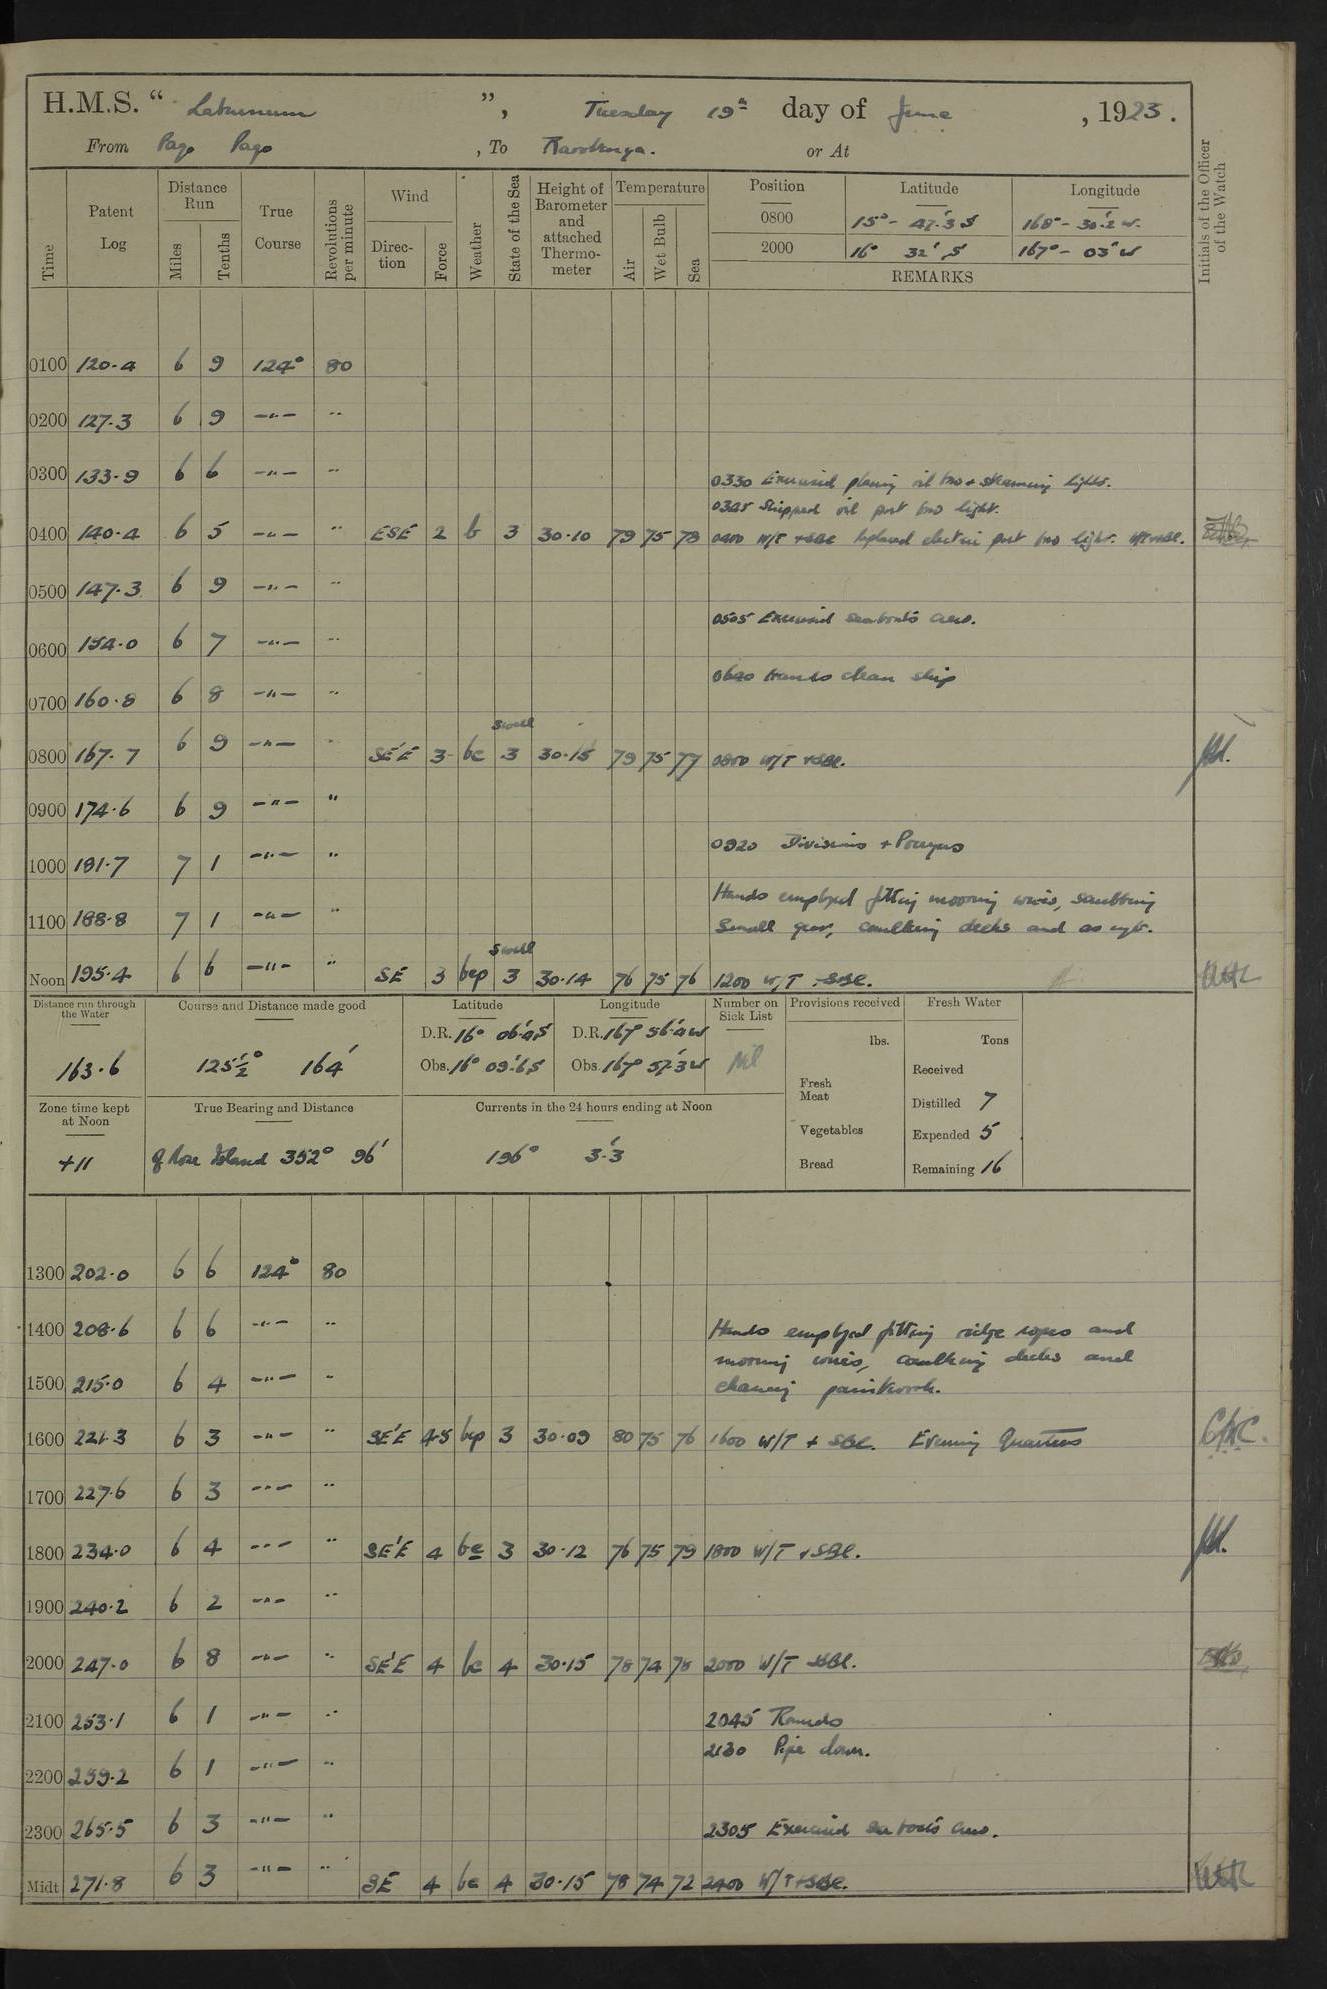 H.M.S. " Laburnum ", Tuesday 19th day of June, 1923.
From Pago Pago, To Rarotonga. or At
Time Patent Log Distance Run Miles Tenths True Course Revolutions per minute Wind Direction Force Weather State of the Sea Height of Barometer and attached Thermometer Temperature Air Wet Bulb Sea Position Latitude Longitude
Initials of the Officer of the Watch
0800 15° - 47'.3 S 168° - 30'.2 W.
2000 16° 32' S 167° - 03' W
REMARKS
0100 120.4 6 9 124° 80
0200 127.3 6 9 -"- "
0300 133.9 6 6 -"- "
0330 Exercised placing oil bow + steaming lights.
0345 Shipped oil port bow light.
0400 140.4 6 5 -"- " ESE 2 b 3 30.10 79 75 78 0400 W/T + SBl. Replaced electric port bow light.
0500 147.3 6 9 -"- "
0505 Exercised seaboat's crew.
0600 154.0 6 7 -"- "
0640 Hands clean ship
0700 160.8 6 8 -"- "
swell
0800 167.7 6 9 -"- " SE'E 3 bc 3 30.15 79 75 77 0800 W/T + SBl.
0900 174.6 6 9 -"- "
0920 Divisions + Prayers
1000 181.7 7 1 -"- "
Hands employed fitting mooring wires, scrubbing
1100 188.8 7 1 -"- "
small gear, caulking decks and as reqte.
swell
Noon 195.4 6 6 -"- " SE 3 bcp 3 30.14 76 75 76 1200 W/T + SBl.
Distance run through the Water Course and Distance made good Latitude Longitude Number on Sick List Provisions received Fresh Water
163.6 125½° 164'
D.R. 16° 06'.4 S D.R. 167° 56'.4 W
Obs. 16° 09'.6 S Obs. 167° 57'.3 W Nil
lbs. Tons
Fresh Meat
Vegetables
Bread
Received
Distilled 7
Expended 5
Remaining 16
Zone time kept at Noon True Bearing and Distance Currents in the 24 hours ending at Noon
+11 of Rose Island 352° 96' 196° 3'.3
1300 202.0 6 6 124° 80
1400 208.6 6 6 -"- "
Hands employed fitting ridge ropes and
mooring wires, caulking decks and
1500 215.0 6 4 -"- "
cleaning paintwork.
1600 221.3 6 3 -"- " SE'E 4-5 bcp 3 30.09 80 75 76 1600 W/T + SBl. Evening Quarters
1700 227.6 6 3 -"- "
1800 234.0 6 4 -"- " SE'E 4 bc 3 30.12 76 75 79 1800 W/T + SBl.
1900 240.2 6 2 -"- "
2000 247.0 6 8 -"- " SE'E 4 bc 4 30.15 78 74 78 2000 W/T + SBl.
2100 253.1 6 1 -"- "
2045 Rounds
2130 Pipe down.
2200 259.2 6 1 -"- "
2300 265.5 6 3 -"- "
2305 Exercised sea boat's crew.
Midt 271.8 6 3 -"- " SE 4 bc 4 30.15 78 74 72 2400 W/T + SBl.